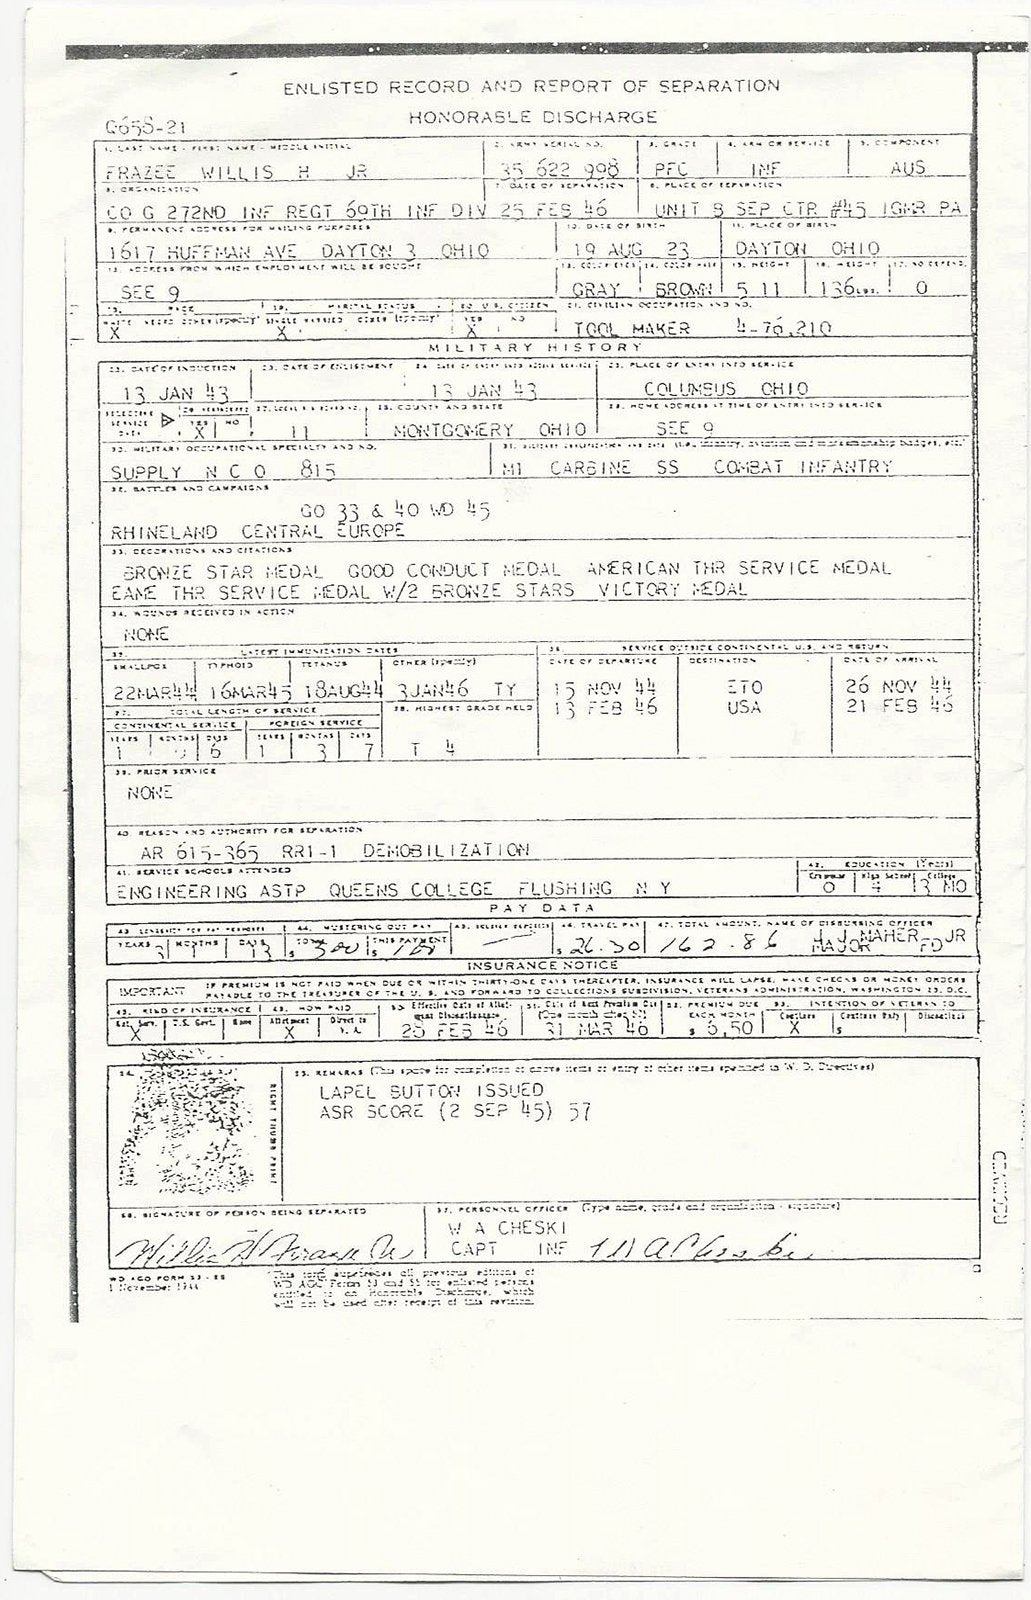 ENLISTED RECORD AND REPORT OF SEPARATION
HONORABLE DISCHARGE
G658-21
1. LAST NAME - FIRST NAME - MIDDLE INITIAL 2. ARMY SERIAL NO. 3. GRADE 4. ARM OR SERVICE 5. COMPONENT
FRAZEE WILLIS H JR 35 622 998 PFC INF AUS
6. ORGANIZATION 7. DATE OF SEPARATION 8. PLACE OF SEPARATION
CO G 272ND INF REGT 69TH INF DIV 25 FEB 46 UNIT B SEP CTR #45 IGMR PA
9. PERMANENT ADDRESS FOR MAILING PURPOSES 10. DATE OF BIRTH 11. PLACE OF BIRTH
1617 HUFFMAN AVE DAYTON 3 OHIO 19 AUG 23 DAYTON OHIO
12. ADDRESS FROM WHICH EMPLOYMENT WILL BE SOUGHT 13. COLOR EYES 14. COLOR HAIR 15. HEIGHT 16. WEIGHT 17. NO. DEPEND.
SEE 9 GRAY BROWN 5 11 136 LBS. 0
18. RACE 19. MARITAL STATUS 20. U.S. CITIZEN 21. CIVILIAN OCCUPATION AND NO.
WHITE NEGRO OTHER (specify) SINGLE MARRIED OTHER (specify) YES NO
X X X TOOL MAKER 4-76.210
MILITARY HISTORY
22. DATE OF INDUCTION 23. DATE OF ENLISTMENT 24. DATE OF ENTRY INTO ACTIVE SERVICE 25. PLACE OF ENTRY INTO SERVICE
13 JAN 43 13 JAN 43 COLUMBUS OHIO
SELECTIVE SERVICE DATA 26. REGISTERED 27. LOCAL S.S. BOARD NO. 28. COUNTY AND STATE 29. HOME ADDRESS AT TIME OF ENTRY INTO SERVICE
YES NO
X 11 MONTGOMERY OHIO SEE 9
30. MILITARY OCCUPATIONAL SPECIALTY AND NO. 31. MILITARY QUALIFICATION AND DATE (i.e., infantry, aviation and marksmanship badges, etc.)
SUPPLY N C O 815 M1 CARBINE SS COMBAT INFANTRY
32. BATTLES AND CAMPAIGNS
GO 33 & 40 WD 45
RHINELAND CENTRAL EUROPE
33. DECORATIONS AND CITATIONS
BRONZE STAR MEDAL GOOD CONDUCT MEDAL AMERICAN THR SERVICE MEDAL
EAME THR SERVICE MEDAL W/2 BRONZE STARS VICTORY MEDAL
34. WOUNDS RECEIVED IN ACTION
NONE
35. LATEST IMMUNIZATION DATES 36. SERVICE OUTSIDE CONTINENTAL U.S. AND RETURN
SMALLPOX TYPHOID TETANUS OTHER (specify) DATE OF DEPARTURE DESTINATION DATE OF ARRIVAL
22MAR44 16MAR45 18AUG44 3JAN46 TY 15 NOV 44 ETO 26 NOV 44
13 FEB 46 USA 21 FEB 46
37. TOTAL LENGTH OF SERVICE 38. HIGHEST GRADE HELD
CONTINENTAL SERVICE FOREIGN SERVICE
YEARS MONTHS DAYS YEARS MONTHS DAYS
1 6 1 3 7 T 4
39. PRIOR SERVICE
NONE
40. REASON AND AUTHORITY FOR SEPARATION
AR 615-365 RR1-1 DEMOBILIZATION
41. SERVICE SCHOOLS ATTENDED 42. EDUCATION (Years)
Grammar High School College
ENGINEERING ASTP QUEENS COLLEGE FLUSHING N Y 0 4 3 MO
PAY DATA
43. LONGEVITY FOR PAY PURPOSES 44. MUSTERING OUT PAY 45. SOLDIER DEPOSITS 46. TRAVEL PAY 47. TOTAL AMOUNT, NAME OF DISBURSING OFFICER
YEARS 3 MONTHS 1 DAYS 13 TOTAL $ 300 THIS PAYMENT $ $ 26.30 162.86 J MAHER JR
MAJOR FD
INSURANCE NOTICE
IMPORTANT IF PREMIUM IS NOT PAID WHEN DUE OR WITHIN THIRTY-ONE DAYS THEREAFTER, INSURANCE WILL LAPSE. MAKE CHECKS OR MONEY ORDERS
PAYABLE TO THE TREASURER OF THE U. S. AND FORWARD TO COLLECTIONS SUBDIVISION, VETERANS ADMINISTRATION, WASHINGTON 25, D.C.
48. KIND OF INSURANCE 49. HOW PAID 50. Effective Date of Allotment Discontinuance 51. Date of Next Premium Due (One month after 50) 52. PREMIUM DUE EACH MONTH 53. INTENTION OF VETERAN TO
Nat. Serv. U.S. Govt. None Allotment Direct to V. A. Continue Continue Only Discontinue
X X 28 FEB 46 31 MAR 46 $ 6.50 X $
54. RIGHT THUMB PRINT
55. REMARKS (This space for completion of above items or entry of other items specified in W. D. Directives)
LAPEL BUTTON ISSUED
ASR SCORE (2 SEP 45) 57
RECEIVED
56. SIGNATURE OF PERSON BEING SEPARATED 57. PERSONNEL OFFICER (Type name, grade and organization - signature)
Willis H Frazee Jr W A CHESKI
CAPT INF W A Cheski
WD AGO FORM 53-55
1 November 1944
This form supersedes all previous editions of
WD AGO Forms 53 and 55 for enlisted persons
entitled to an Honorable Discharge, which
will not be used after receipt of this revision.